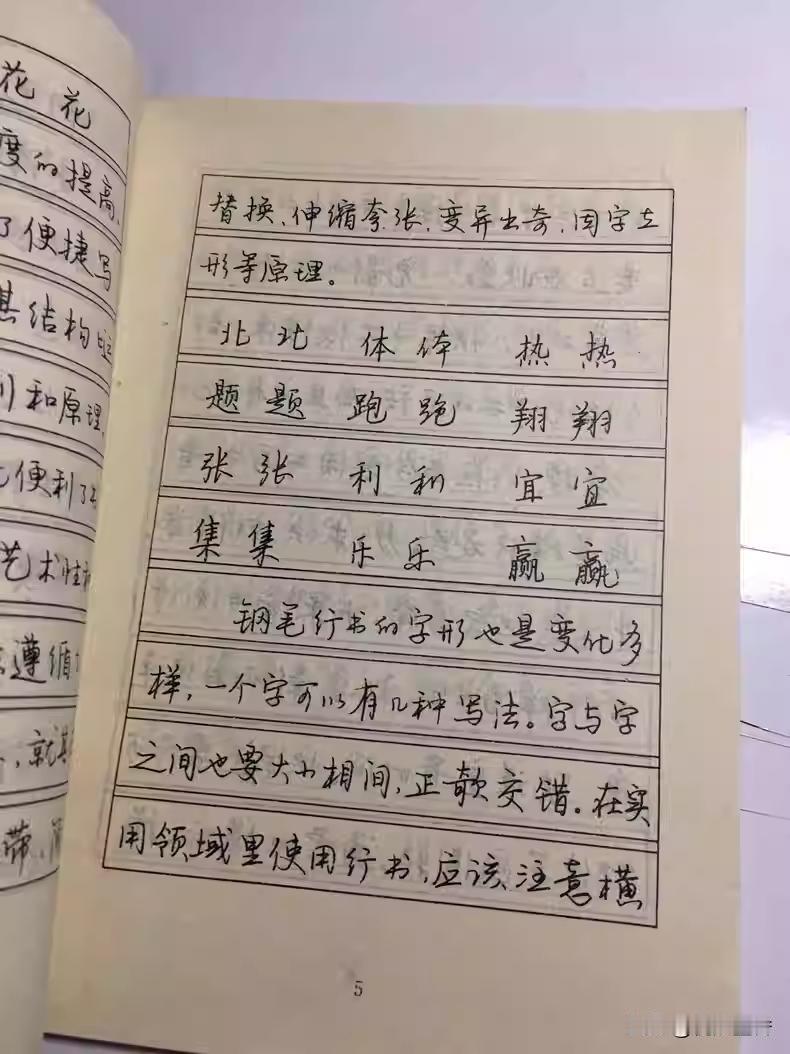 花 花
度的提高,
了便捷写
其结构
和原理,
便利了
艺术性
遵循
,就其
带,
替换、伸缩夸张、变异出奇、因字立
形等原理。
北 北 体 体 热 热
题 题 跑 跑 翔 翔
张 张 利 利 宜 宜
集 集 乐 乐 赢 赢
钢笔行书的字形也是变化多
样,一个字可以有几种写法。字与字
之间也要大小相间,正欹交错。在实
用领域里使用行书,应该注意横
5